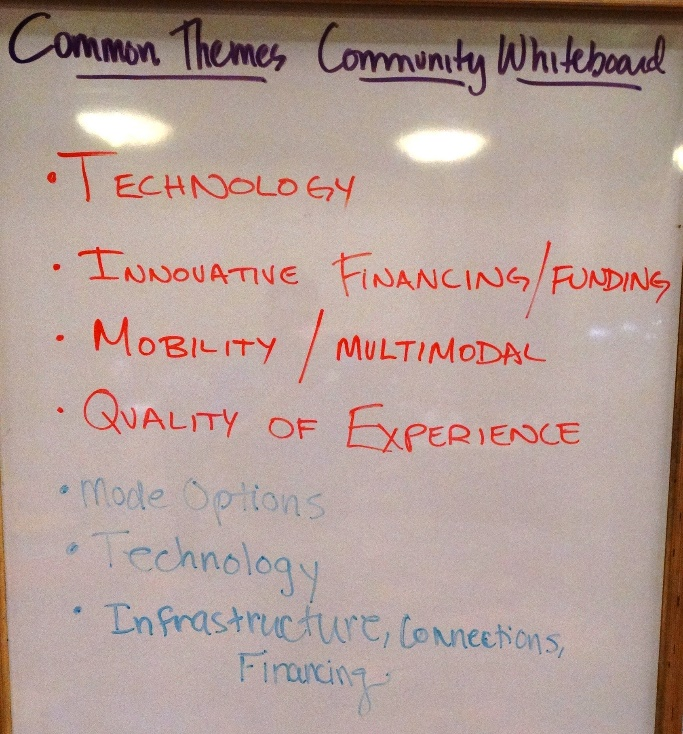 Common Themes Community Whiteboard
• TECHNOLOGY
• INNOVATIVE FINANCING/FUNDING
• MOBILITY / MULTIMODAL
• QUALITY OF EXPERIENCE
• Mode Options
• Technology
• Infrastructure, Connections,
Financing.